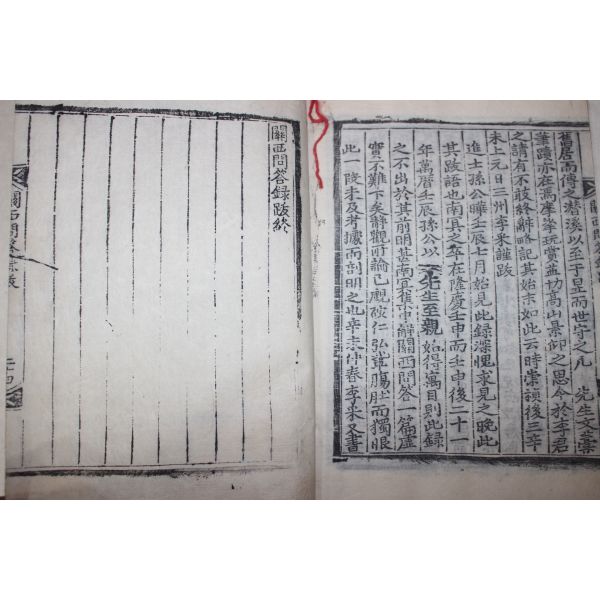 舊居而傳之潛溪以至于杲而世守之凡 先生文藁
筆蹟亦在焉摩挲玩賞益切高山景仰之思今於李君
之請有不敢終辭略記其始末如此云時崇禎後三辛
未上元日三州李采謹跋
進士孫公曄壬辰七月始見此錄深愧求見之晩此
其跋語也南具之卒在隆慶壬申而壬申後二十一
年萬曆壬辰孫公以 先生至親 始得寓目則此錄
之不出於其前明甚南宜蕉中辭關西問答一篇虛
實不難下矣辭觀所論已覷破仁弘輩膓肚而獨眼
此一段未及考據而剖明之也辛未仲春李采又書
關西問答錄跋終
關西問答錄跋
二十四